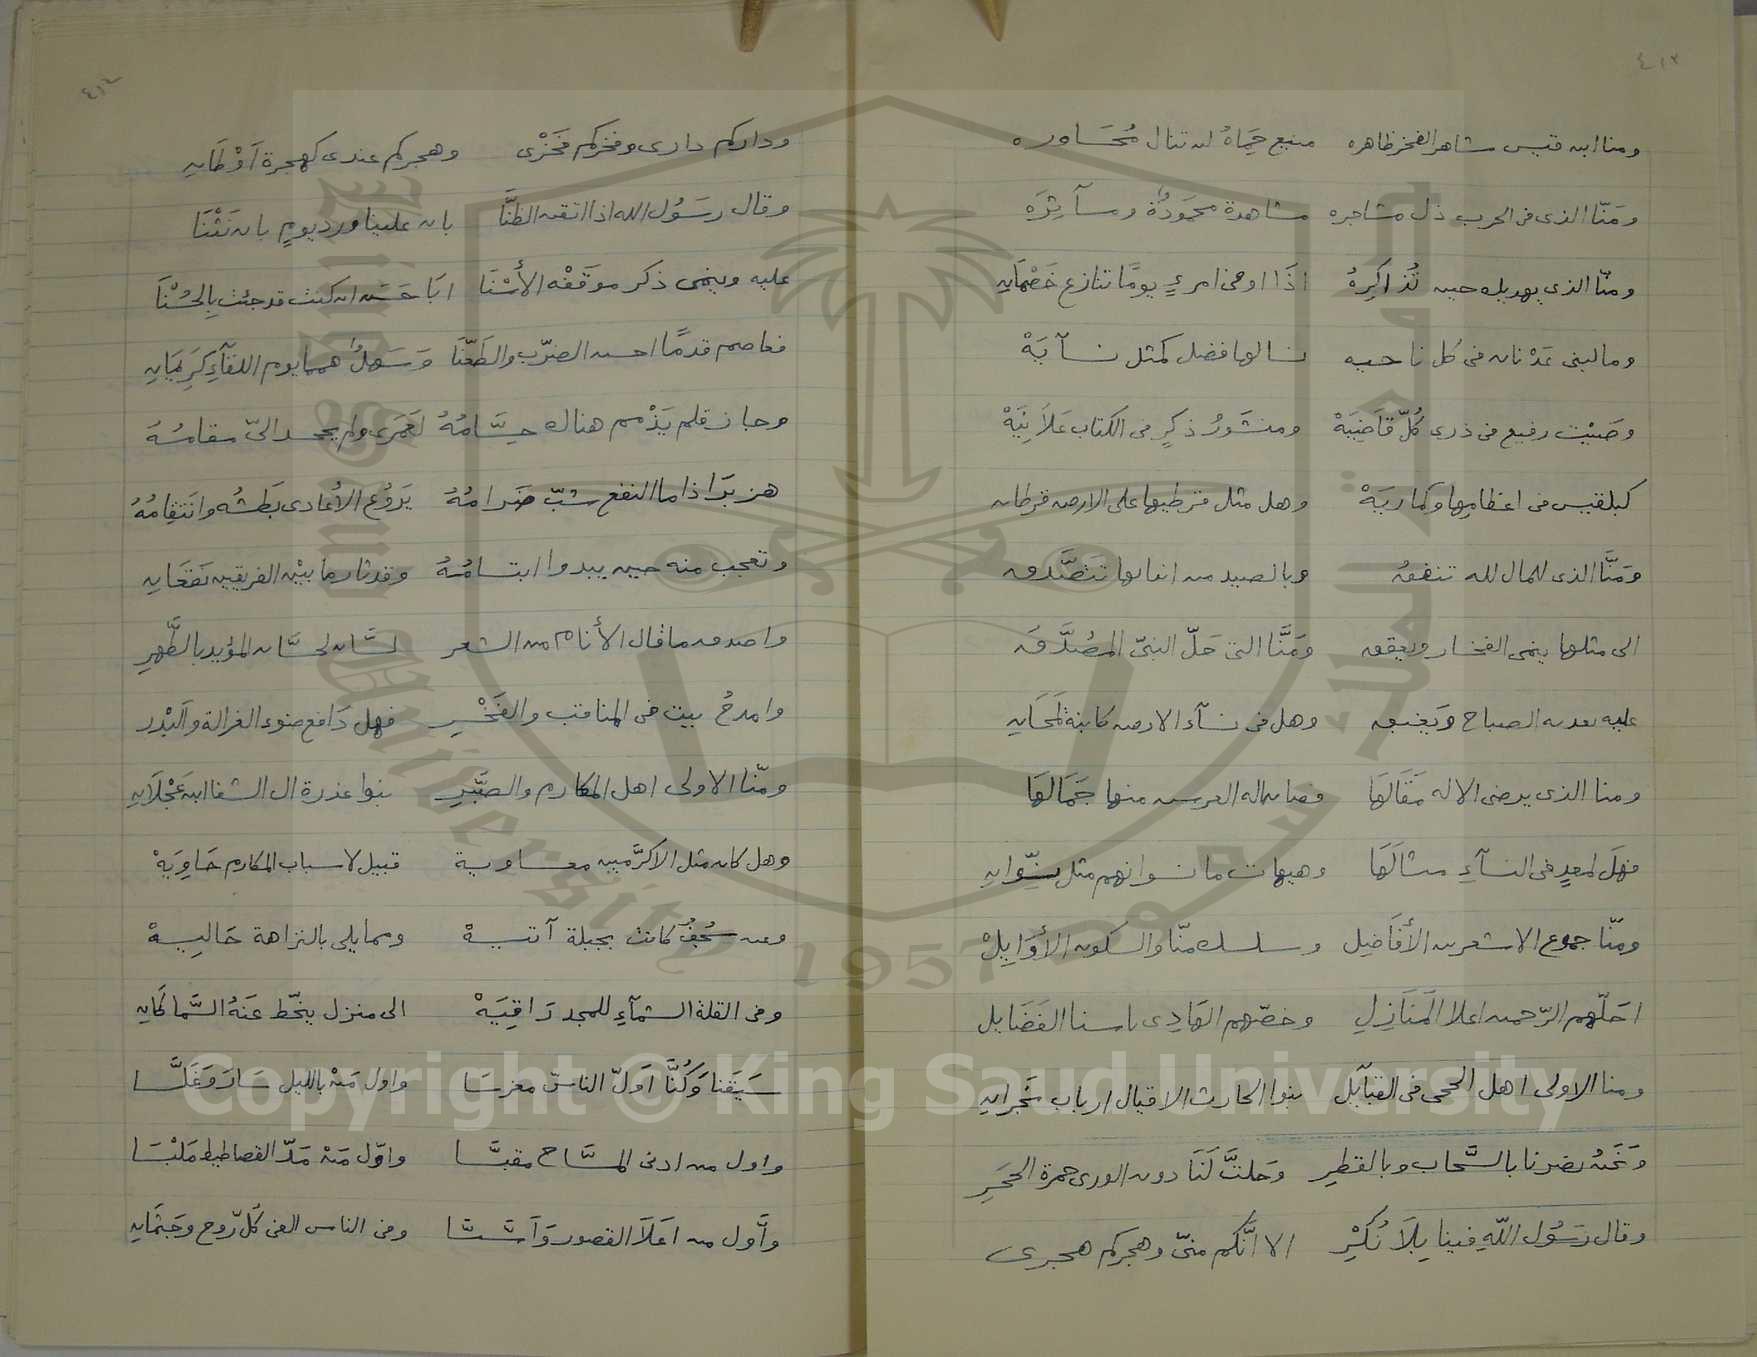 ٤١٣
ومنا ابن قيس شاهر الفخر ظاهره منيع حماهُ لن تنال مُحَاوره
ومَنّا الذى فى الحرب ذل مشاجره مشاهدة محمَودُة ومآثِرَه
ومنّا الذى يهديك حين تُذاكِرهُ اذَا اوهى امرءٍ يومًا تنازع خَصْمَانِ
وما لبنى عَدْنان فى كل ناحيه نسا لها فضل كمثل نسآئيَهْ
وصَيْت رفيع فى ذرى كُلّ قَاصِيَهْ ومنشَورُ ذكرٍ فى الكتاب عَلاَنِيَهْ
كبلقيس فى اعظامِها وكماريَهْ وهل مثل قرطيها على الارض قرطان
ومَنَّا الذى للمال لله تنفقُ وبالصيد من انعالها تَتَصَّدق
الى مثلها ينمى الفخار ويعبق ومَنَّا التى حَلّ النبىّ المصُدَّقَ
عليه بعدن الصباح وَيَغبق وهل فى نسآء الارض كابنة لمحَانِ
ومنا الذى يرضى الاله مَقَالَهَا وصان اله العرش منها جَمَالهَا
فهَل لمعدٍ فى النسآءِ مثالَهَا وهيهات ما نسوانهم مثل نِسّوانِ
ومنّا جموع الاشعرين الأفَاضِيل وسلسله منّا والسكون الأوَايِلْ
احَلّهم الرّحمن اعلا المَنَازِلِ وخصّهم الهَادِى باسنا الفَضَايل
ومنا الاولى اهل الحجى فى القبآيَل بنوا الحارث الاقيال ارباب نَجران
وَنَحْنُ نصرنا بالسَّحاب وبالقطرِ وَحلتَّ لَنَا دون الورى حمرة الحجَرِ
وقال رَسُول اللّهِ فينا بِلاَ نُكْرِ الا انَّكم منىّ وهجركم هجرى
٤١٤
وداركم دارى وفخركم فَخَرْى وهجركم عندى كهجرة اَوْطَانِ
وقال رسَوُل الله اذا اتقن الظنَّا بان علينا ورد يومٍ بان نَثْنَا
عليه وينمى ذكر موقَفْه الأسَْنَا ابَا حَسَن ان كنت قد جئت بِالحُسْنَا
فعاصم قدمًا احسن الضرّب والطَعّنَا وَسَهلُ هما يوم اللقآءِ كَرَيمَانِ
وحاز فلم يَذْمم هناك حسَّامُهُ لعَمَرى ولم يجحد الىّ مقامُهُ
هزبرَا اذا ما النقع شبّ ضَرامُهُ يَروُع الأعادى بَطشُه وانتَقِامُهُ
وتعجب منه حين يبدوا ابتسامُهُ وقد ثار ما بيْن الفريقين نَقعَانِ
واصدق ما قال الأنام من الشعر لسَّان لحسَّان المؤيد بالظَّهرِ
وامدحُ بيت فى المناقب والفَخْرِ فهل دَافع ضوء الغزالة والَبْدر
ومنّا الاولى اهل المكارم والصَبّرِ بنوا عذرة ال الشفا ابن عَجْلَانِ
وهل كان مثل الاكرَّمين معاوية قبيل لاسباب المكارم حَاوِيَهْ
وعن سُحُفٌ كانت بجبلة آتيةْ ومما يلى بالنزاهة حَاليِهْ
وفى القلة الشمآءِ للمجد رَاقِيَهْ الى منزل ينحّط عَنهُ السَّماكَانِ
سَبَقَنا وَكُنَّا اَولّ الناسّ مغرسَا واول مَنْ بالليل سَارَ وَغَلَّسا
واول من ادنى المسَّاح مقبسَّا واوّل مَنْ مَدّ الفصاطيط مَلبْسَا
واَّول من اعَلاَ القصور وَاَسّسَا وفى الناس الفى كُلّ رّوح وَجَثْمَانِ